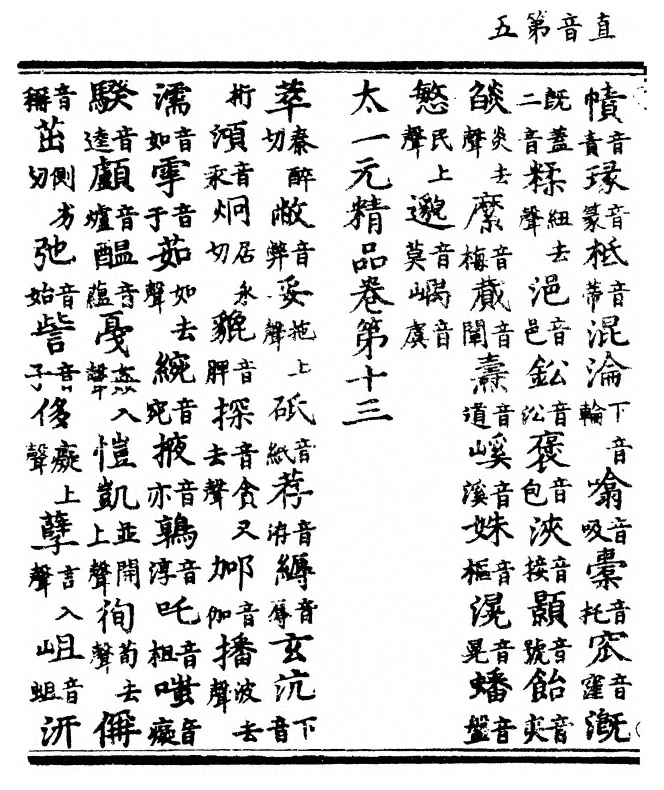 直音第五
幘音責瑑音篆柢音蒂混淪下音輪噏音吸橐音托窊音窪漑
既蓋二音糅紐去聲浥音邑鈆音㳂褒音包浹音接顥音號飴音夷
燄炎去聲縻音梅蕆音闡纛音道嵠音溪姝音樞滉音晃蟠音盤
慜民上聲邈音莫嵎音虞
太一元精品卷第十三
萃秦醉切敝音弊妥拖上聲砥音紙荐音洊縟音辱玄沆下音
桁澒音汞炯居永切貔音脾探音貪又去聲加邟音伽播波去聲
濡音如雩音于茹如去聲綩音宛掖音亦鶉音淳吒音柤嗤音癡
騤音逵顱音爐醖音藴戞入聲愷凱並開上聲徇荀去聲偁
音稱茁側劣切弛音始訾音子侈癡上聲孽言入聲岨音蛆汧